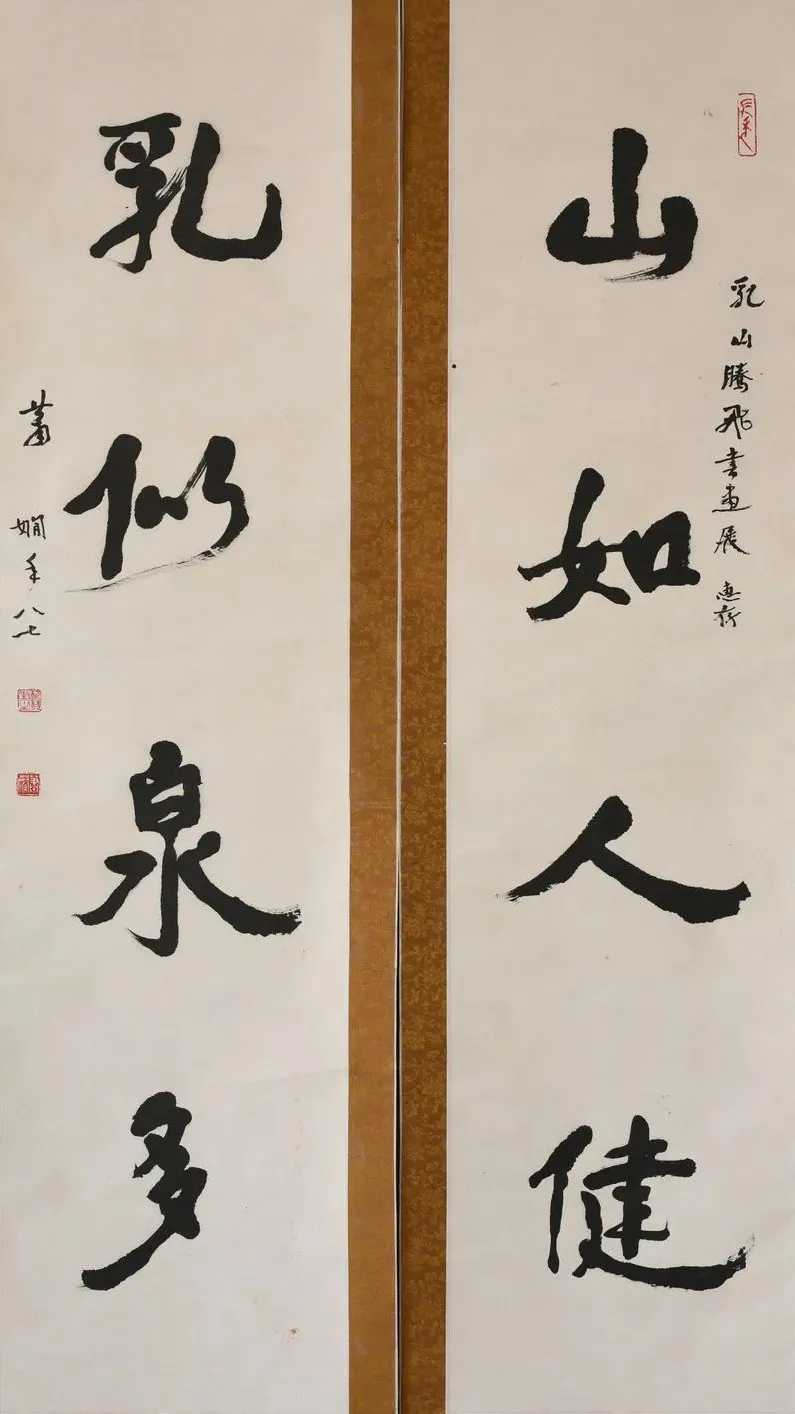 乳山腾飛書画展 惠存
山如人健
乳似泉多
萧娴年八七